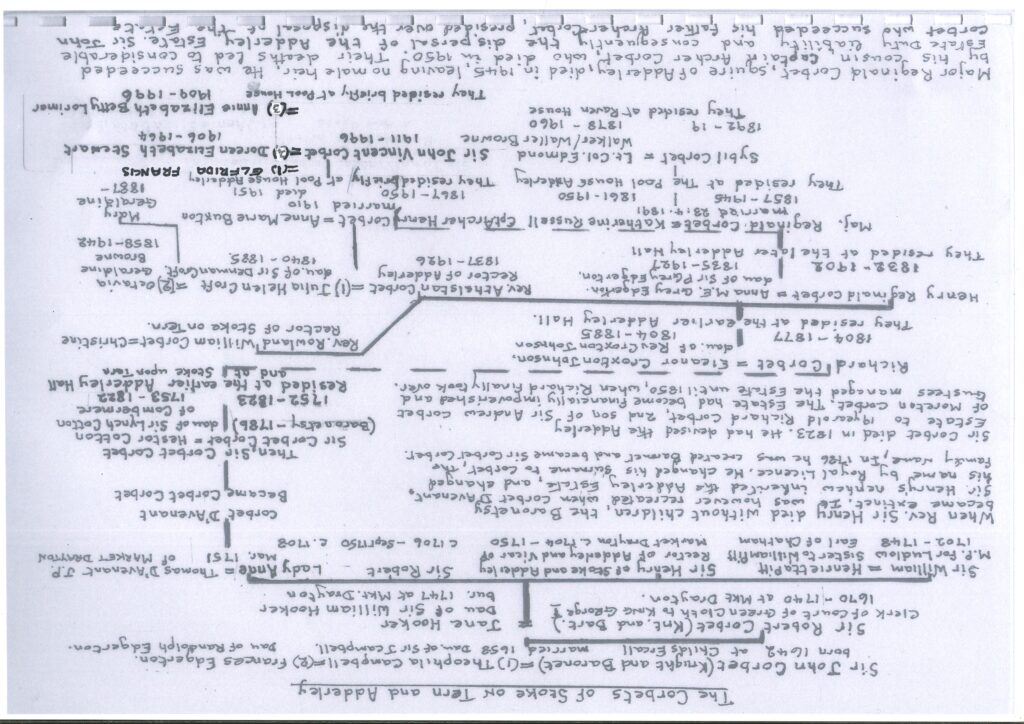 The Corbets of Stoke on Tern and Adderley
Sir John Corbet (Knight and Baronet) =(1) Theophila Campbell =(2) Frances Edgerton.
born 1642 at Childs Ercall married 1658 Dau of Sir J Campbell. Dau of Randolph Edgerton.
Sir Robert Corbet (Knt. and Bart.) = Jane Hooker
Clerk of Court of Green Cloth to King George I Dau of Sir William Hooker
1670 - 1740 at Mkt Drayton. bur. 1747 at Mkt. Drayton
Sir William = Henrietta Pitt Sir Henry of Stoke and Adderley Sir Robert Lady Anne = Thomas D'Avenant J.P.
M.P. for Ludlow Sister to William Pitt Rector of Adderley and Vicar of mar. 1751 of Market Drayton
1702 - 1748 Earl of Chatham Market Drayton c.1704 - 1750 c.1706 - Sep 1750 c. 1708
When Rev. Sir Henry died without children, the Baronetsy
became extinct. It was however recreated when Corbet D'Avenant,
Sir Henry's nephew inherited the Adderley Estate, and changed
his name by Royal Licence. He changed his surname to Corbet, the
family name, In 1786 he was created Baronet and became Sir Corbet Corbet.
Corbet D'Avenant
Became Corbet Corbet
Then, Sir Corbet Corbet
Sir Corbet Corbet = Hestor Cotton
(Baronetsy - 1786) dau of Sir Lynch Cotton
of Combermere
1752 - 1823 1753 - 1822
Resided at the earlier Adderley Hall
and at Stoke upon Tern
Sir Corbet died in 1823. He had devised the Adderley
Estate to 19 year old Richard Corbet, 2nd son of Sir Andrew Corbet
of Moreton Corbet. The Estate had become financially impoverished and
trustees managed the Estate until 1850, when Richard finally took over.
Richard Corbet = Eleanor Croxton Johnson,
dau. of Rev Croxton Johnson
1804 - 1877 1804 - 1885
They resided at the earlier Adderley Hall.
Rev. Rowland William Corbet = Christine
Rector of Stoke on Tern.
Henry Reginald Corbet = Anna M.E. Grey Edgerton
dau of Sir P Grey Edgerton.
1832 - 1902 1835 - 1927
They resided at the later Adderley Hall
Rev Athelstan Corbet =(1) Julia Helen Croft =(2) Octavia
Rector of Adderley dau. of Sir Denman Croft. Geraldine
1837 - 1926 1840 - 1885 Browne
1858 - 1942
Maj. Reginald Corbet = Katherine Russell
married 28.4.1891
1857 - 1945 1861 - 1950
They resided at The Pool House Adderley
Cpt Archer Henry Corbet = Anne Marie Buxton
married 1910
1867 - 1950 died 1951
They resided briefly at Pool House Adderley
Mary
Geraldine
1887 -
Sybil Corbet = Lt. Col. Edmond
Walker/Walter Browne
1892 - 19 1878 - 1960
They resided at Raven House
=(1) ELFRIDA FRANCIS
Sir John Vincent Corbet =(2) Doreen Elizabeth Stewart
1911 - 1996 1906 - 1964
=(3) Annie Elizabeth Betty Lorimer
They resided briefly at Pool House 1909 - 1996
Major Reginald Corbet, squire of Adderley, died in 1945, leaving no male heir. He was succeeded
by his cousin Captain Archer Corbet, who died in 1950. Their deaths led to considerable
Estate Duty liability and consequently the dispersal of the Adderley Estate. Sir John
Corbet who succeeded his father Archer Corbet, presided over the disposal of the Estate